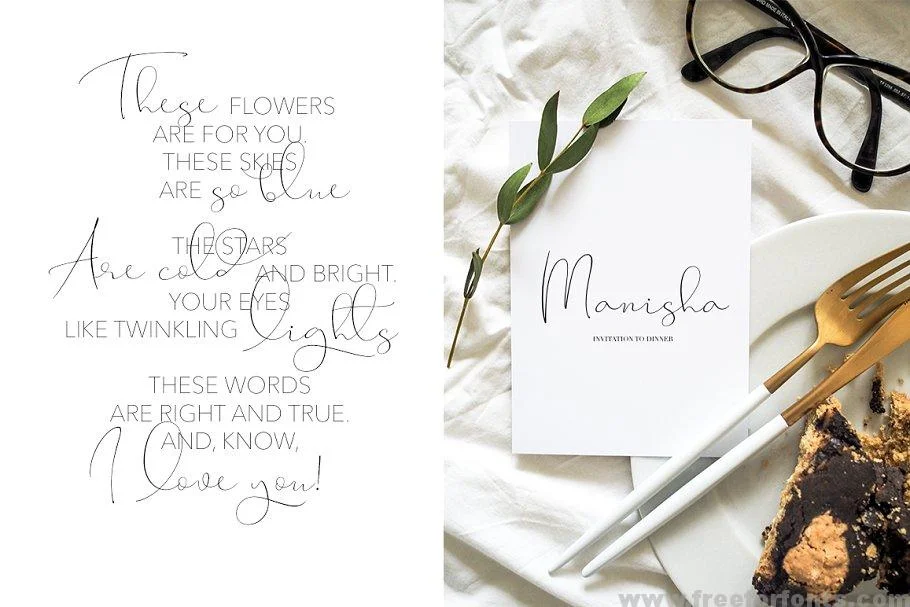 These FLOWERS
ARE FOR YOU.
THESE SKIES
ARE so blue
THE STARS
Are cold AND BRIGHT.
YOUR EYES
LIKE TWINKLING lights
THESE WORDS
ARE RIGHT AND TRUE.
AND, KNOW,
I love you!
Manisha
INVITATION TO DINNER
www.freeforfonts.com